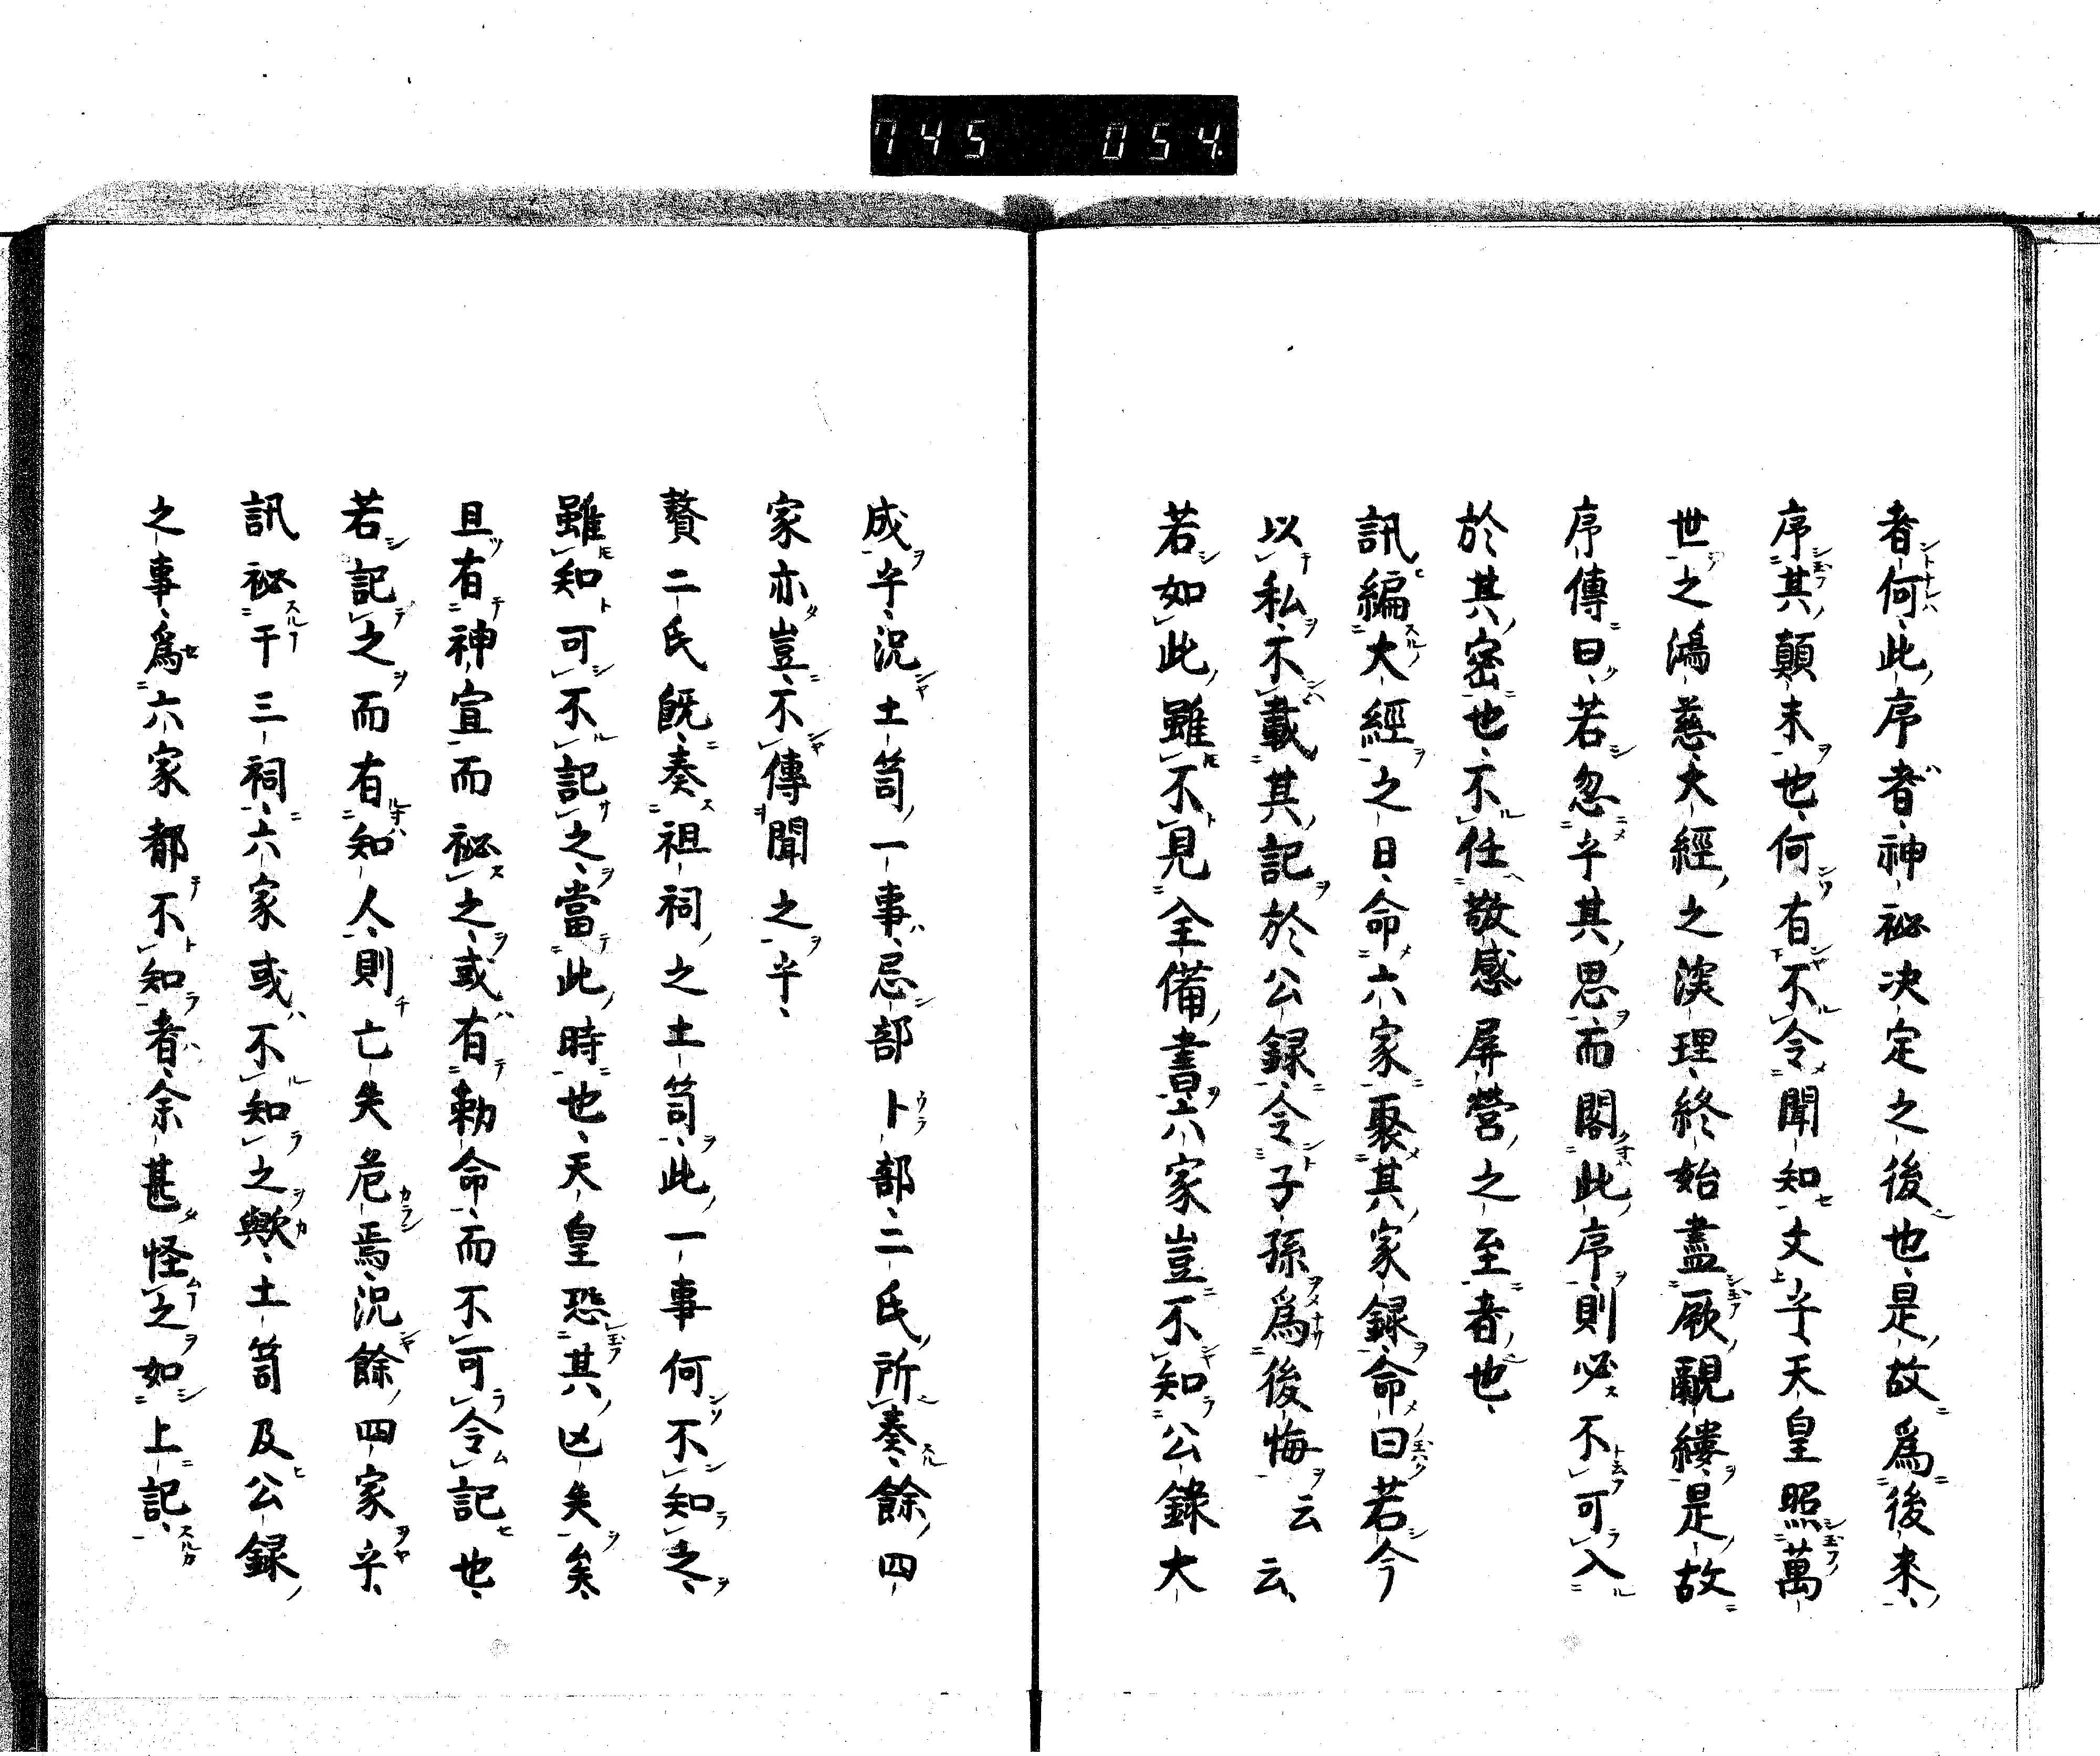 745 054
者何此序者神祕决定之後也是故爲後來
序其顛末也何有不令聞知丈乎天皇照萬
世之鴻慈大經之淡理終始盡厥覼縷是故
序傳曰若忽乎其思而閣此序則必不可入
於其密也不任敬感屏營之至者也
訊編大經之日命六家聚其家録命曰若今
以私不載其記於公録令子孫爲後悔云云
若如此雖不見全備書六家豈不知公錄大
成乎況土笥一事忌部卜部二氏所奏餘四
家亦豈不傳聞之乎
贅二氏既奏祖祠之土笥此一事何不知之
雖知可不記之當此時也天皇恐其凶矣矣
且有神宣而祕之或有勅命而不可令記也
若記之而有知人則亡失危焉況餘四家乎
訊祕干三祠六家或不知之歟土笥及公録
之事爲六家都不知者余甚怪之如上記